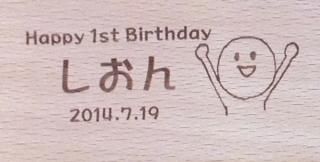 Happy 1st Birthday
しおん
2014.7.19